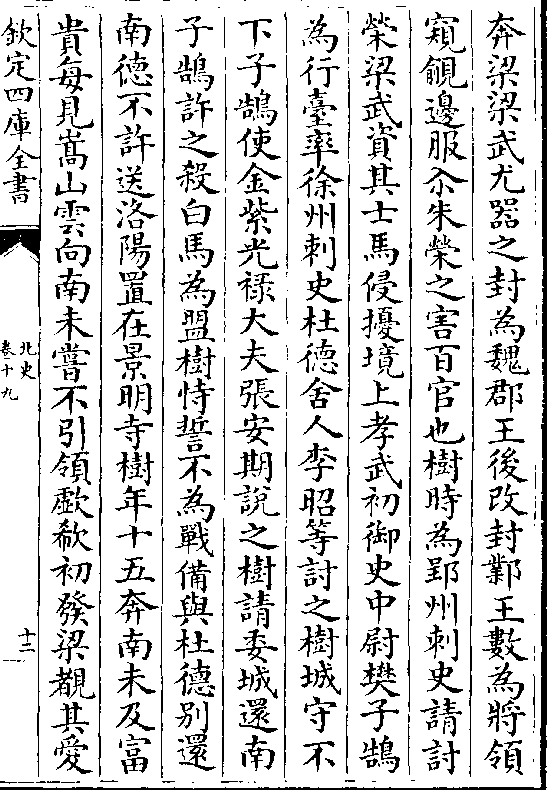 奔梁梁武尤器之封為魏郡王後改封鄴王數為將領
窺覦邊服尒朱榮之害百官也樹時為郢州刺史請討
榮梁武資其士馬侵擾境上孝武初御史中尉樊子鵠
為行臺率徐州刺史杜德舍人李昭等討之樹城守不
下子鵠使金紫光祿大夫張安期說之樹請委城還南
子鵠許之殺白馬為盟樹恃誓不為戰備與杜德别還
南德不許送洛陽置在景明寺樹年十五奔南未及富
貴每見嵩山雲向南未嘗不引領歔欷初發梁覩其愛
欽定四庫全書
北史
卷十九
十二